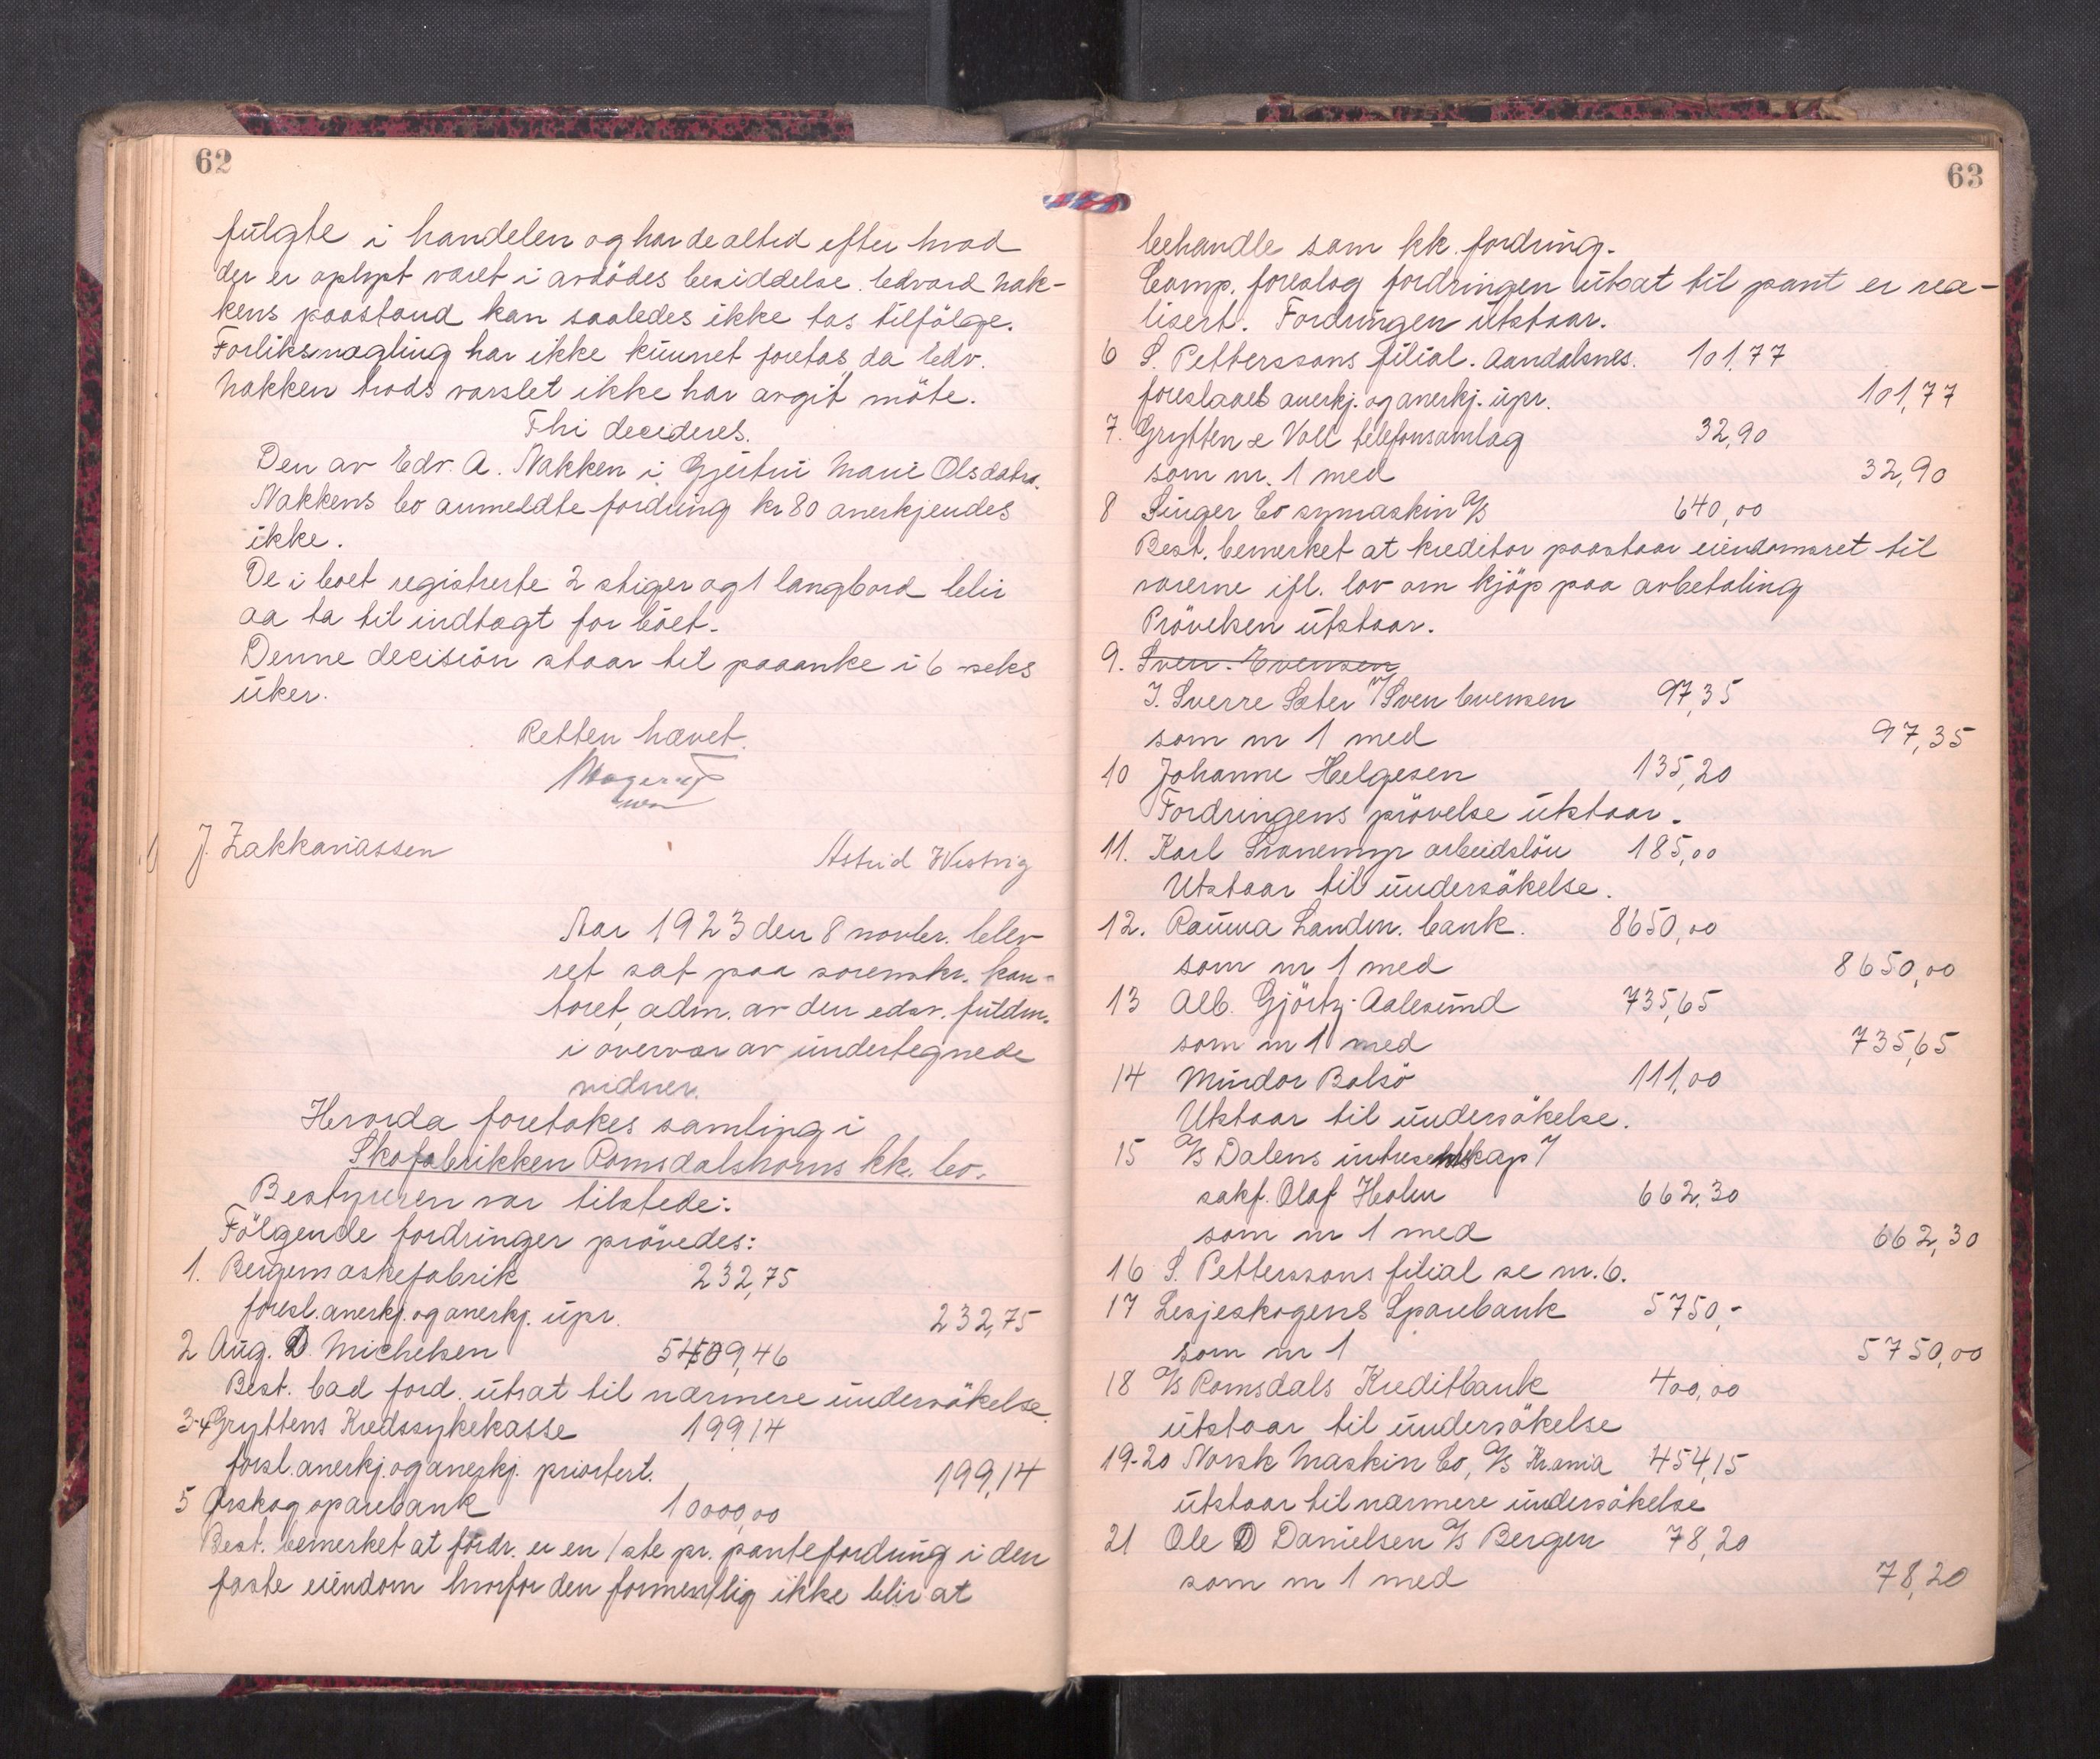 62
fulgte i handelen og har de altid efter hvad
der er oplyst været i avdödes besiddelse. Edvard Nak-
kens paastand kan saaledes ikke tas tilfölge.
Forliksmægling har ikke kunnet foretas, da Edv.
Nakken trods varslet ikke har avgit möte.
Thi decideres.
Den av Edv. A. Nakken i Gjertrui Marie Olsdatr.
Nakkens bo anmeldte fordring kr 80 anerkjendes
ikke.
De i boet registrerte 2 stiger og 1 langbord blir
aa ta til indtægt for boet.
Denne decision staar til paaanke i 6 seks
uker.
Retten hævet.
J. Zakkariassen
Astrid
Aar 1923 den 8 novbr. blev
ret sat paa sorenskr. kon-
toret, adm. av den edsv. fuldm.
i overvær av undertegnede
vidner.
Hvorda foretokes samling i
Skofabrikken Romsdalshorns kk. bo.
Bestyreren var tilstede:
Fölgende fordringer prövedes:
1. Bergen æskefabrik 232,75
foresl. anerkj. og anerkj. upr. 232,75
2 Aug. D. Michelsen 5409,46
Best. bad ford. utsat til nærmere undersökelse.
3-4 Gryttens Kredssykekasse 199,14
forsl. anerkj. og anerkj. priortert. 199,14
5 Ørskog sparebank 10000,00
Best. bemerket at fordr. er en 1ste pr. pantefordring i den
faste eiendom hvorfor den formentlig ikke blir at
63
behandle som kk. fordring.
Comp. foreslog fordringen utsat til pant er rea-
lisert. Fordringen utstaar.
6 S. Petterssons filial. Aandalsnes. 101,77
foreslaaes anerkj. og anerkj. upr. 101,77
7. Grytten & Voll telefonsamlag 32,90
som nr. 1 med 32,90
8 Singer Co symaskin A/S 640,00
Best. bemerket at kreditor paastaar eiendomsret til
varerne ifl. lov om kjöp paa avbetaling
Prövelsen utstaar.
9. Sven. Evensen
J. Sverre Sæter v/ Sven Evensen 97,35
som nr 1 med 97,35
10 Johanne Helgesen 135,20
Fordringens prövelse utstaar.
11. Karl Svanemyr arbeidslön 185,00
Utstaar til undersökelse.
12. Rauma Landm. bank. 8650,00
som nr 1 med 8650,00
13 Alb. Gjörtz Aalesund 735,65
som nr 1 med 735,65
14 Mindor Bolsö 111,00
Utstaar til undersökelse.
15 A/S Dalens intresentskap v/
sakf. Olaf Holm 662,30
som nr 1 med 662,30
16 S. Petterssons filial se nr. 6.
17 Lesjeskogens Sparebank 5750,-
som nr 1 5750,00
18 A/S Romsdals Kreditbank 400,00
utstaar til undersökelse
19-20 Norsk Maskin Co, A/S Kr.ania 454,15
utstaar til nærmere undersökelse
21 Ole D Danielsen A/S Bergen 78,20
som nr 1 med 78,20